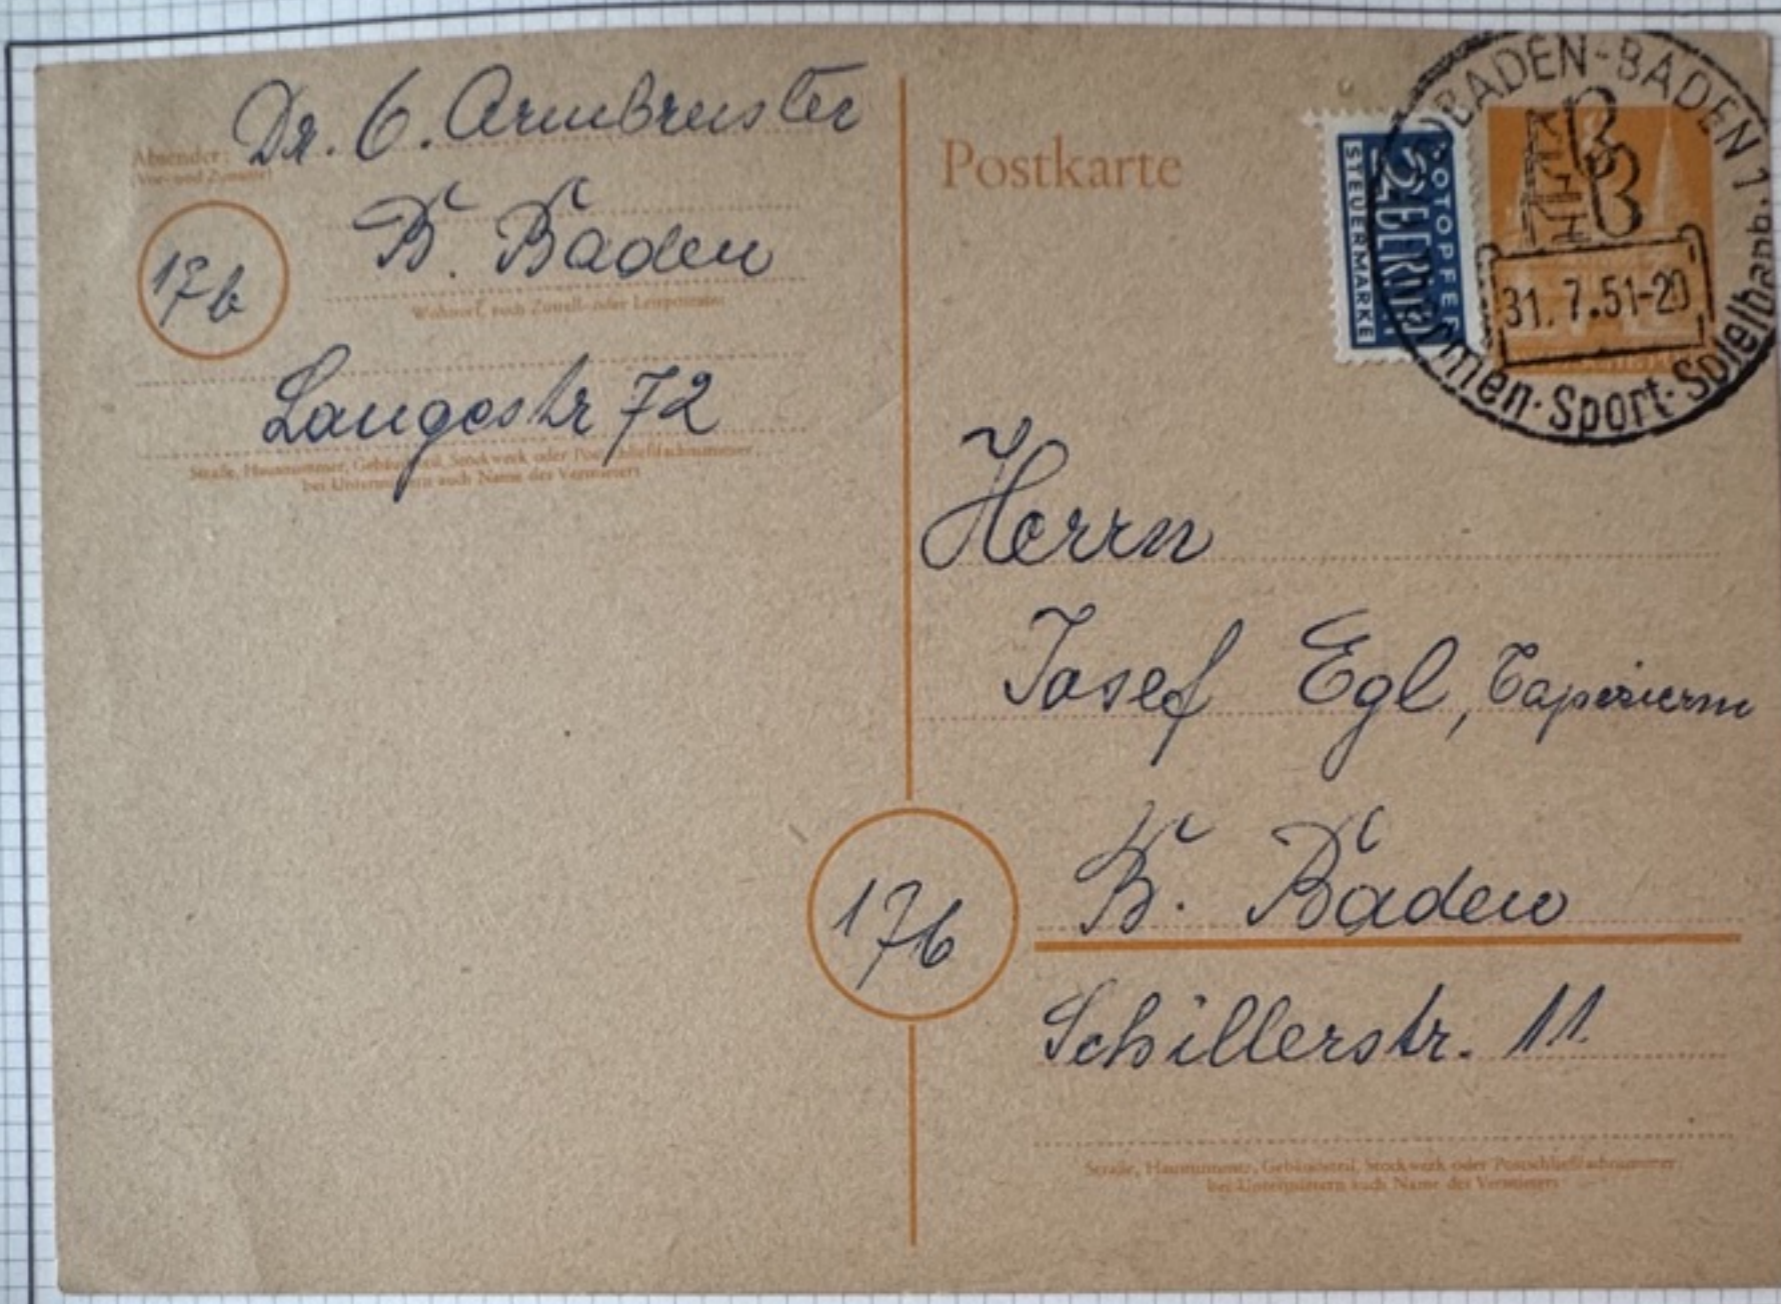 Dr. C. Armbruster
Absender:
(Vor- und Zuname)
B. Baden
17b
Wohnort, auch Zustell- oder Leitpostamt
Langestr 72
Straße, Hausnummer, Gebäudeteil, Stockwerk oder Postschließfachnummer,
bei Untermietern auch Name des Vermieters
Postkarte
NOTOPFER
2 BERLIN
STEUERMARKE
BADEN-BADEN 1
31.7.51-20
Sport
Herrn
Josef Egl,
B. Baden
17b
Schillerstr. 11
Straße, Hausnummer, Gebäudeteil, Stockwerk oder Postschließfachnummer,
bei Untermietern auch Name des Vermieters